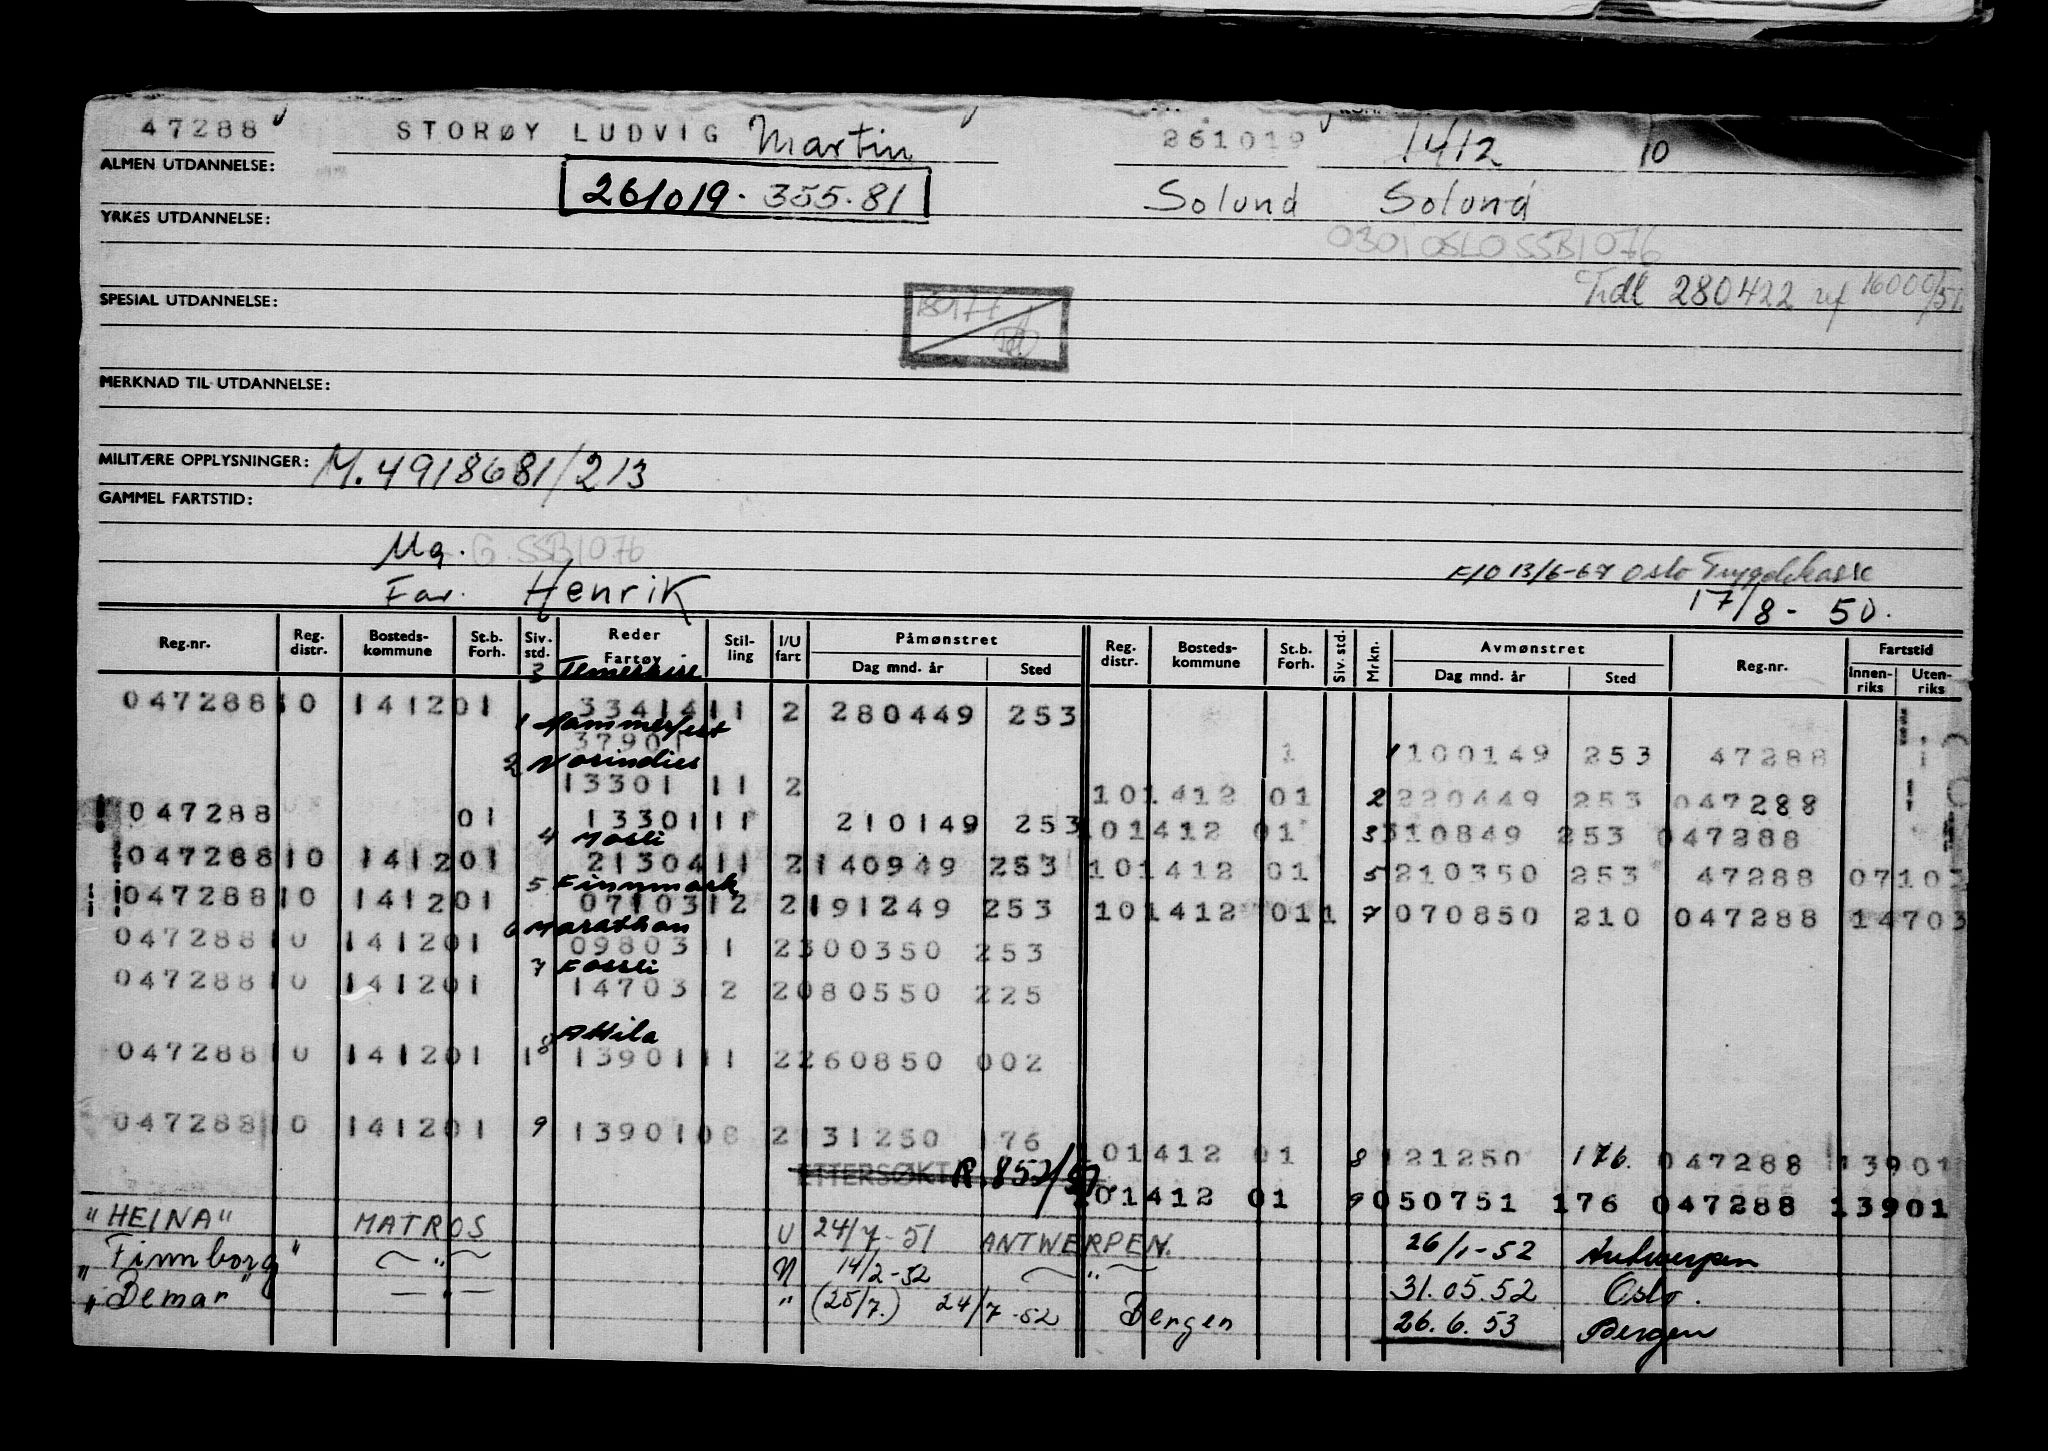 47288 STORØY LUDVIG Martin 261019 1412 10
ALMEN UTDANNELSE:
261019. 355.81 Solund Solund
YRKES UTDANNELSE:
0301 OSLO SSB1076
Tidl 280422
SPESIAL UTDANNELSE:
MERKNAD TIL UTDANNELSE:
MILITÆRE OPPLYSNINGER: M.4918681/213
GAMMEL FARTSTID:
Ug. G. SSB1076
F/O 13/6-67 Oslo Trygdekasse
Far. Henrik 17/8 - 50.
Reg.nr. Reg. distr. Bosteds-kommune St.b. Forh. Siv. std. Reder Fartøy Stil-ling I/U fart Påmønstret Dag mnd. år Sted Reg. distr. Bosteds-kommune St.b. Forh. Siv. std. Mrkn. Avmønstret Dag mnd. år Sted Reg.nr. Fartstid Innen-riks Uten-riks
3
047288 10 1412 01 33414 11 2 280449 253
1 Hammerfest
37901 1 1 100149 253 47288
2
13301 11 2 10 1412 01 2 220449 253 047288
047288 01 13301 11 210149 253 10 1412 01 3 310849 253 047288
4 Mosli
047288 10 1412 01 21304 11 2 140949 253 10 1412 01 5 210350 253 47288 07103
5 Finnmark
047288 10 1412 01 07103 12 2 191249 253 10 1412 01 1 7 070850 210 047288 14703
6 Marathon
047288 10 1412 01 09803 1 2 300350 253
7 Fossli
047288 10 1412 01 14703 12 2 080550 225
8 Attila
047288 10 1412 01 1 13901 11 2 260850 002
047288 10 1412 01 9 13901 08 2 131250 176
10 1412 01 8 121250 176. 047288 13901
ETTERSØKT R.852/51
10 1412 01 9 050751 176 047288 13901
"HEINA" MATROS U 24/7-51 ANTWERPEN. 26/1-52 Antwerpen
"Finnborg" — " — N 14/2-52 — " — 31.05.52 Oslo.
"Bemar" — " — " (25/7.) 24/7-52 Bergen 26.6.53 Bergen